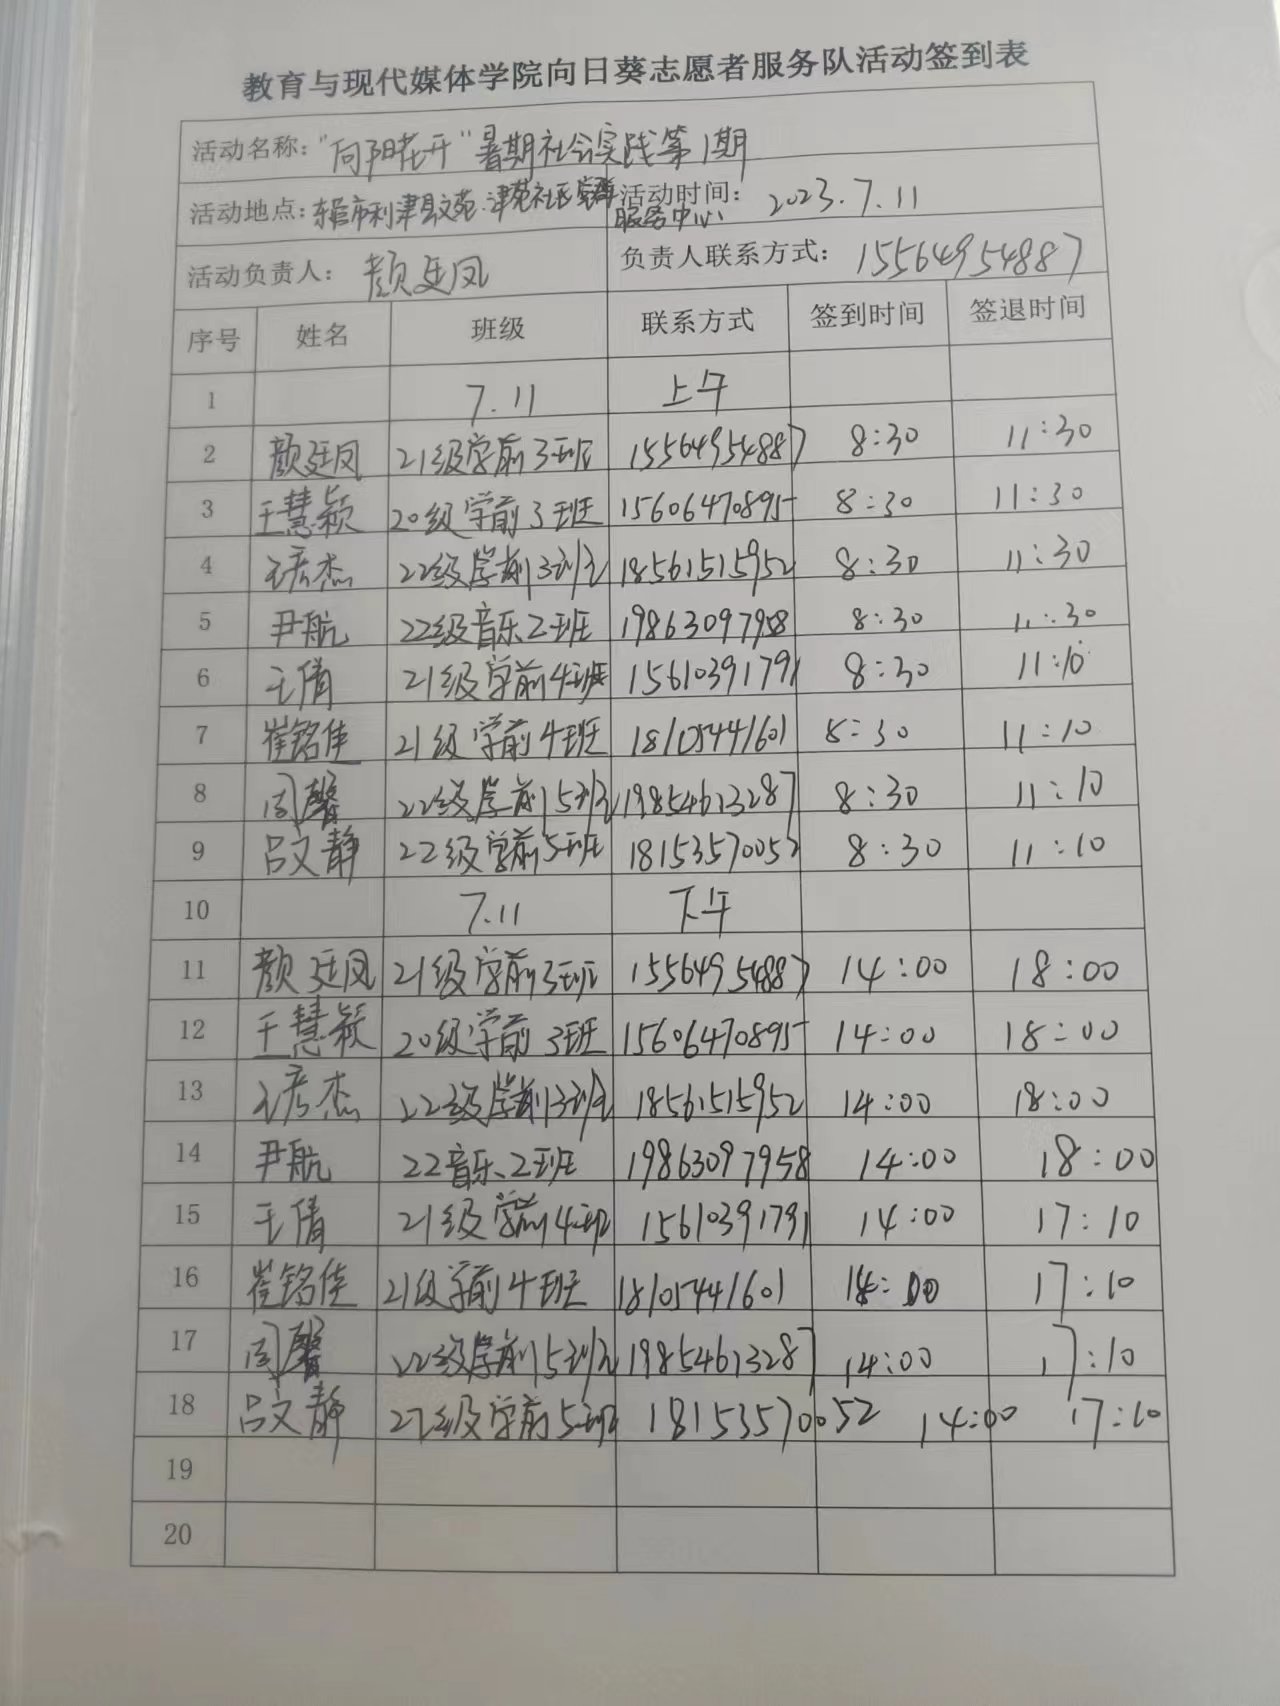 教育与现代媒体学院向日葵志愿者服务队活动签到表
活动名称：“向阳花开”暑期社会实践第1期
活动地点：东营市利津县文苑、津苑社区党群服务中心 活动时间：2023.7.11
活动负责人：颜廷凤 负责人联系方式：15564954887
序号 姓名 班级 联系方式 签到时间 签退时间
1 7.11 上午
2 颜廷凤 21级学前3班 15564954887 8:30 11:30
3 王慧颖 20级学前3班 15606470895 8:30 11:30
4 王彦杰 22级学前3班 18561515952 8:30 11:30
5 尹航 22级音乐2班 19863097958 8:30 11:30
6 王倩 21级学前4班 15610391791 8:30 11:10
7 崔铭佳 21级学前4班 18105441601 8:30 11:10
8 周馨 22级学前5班 19854613287 8:30 11:10
9 吕文静 22级学前5班 18153570052 8:30 11:10
10 7.11 下午
11 颜廷凤 21级学前3班 15564954887 14:00 18:00
12 王慧颖 20级学前3班 15606470895 14:00 18:00
13 王彦杰 22级学前3班 18561515952 14:00 18:00
14 尹航 22音乐2班 19863097958 14:00 18:00
15 王倩 21级学前4班 15610391791 14:00 17:10
16 崔铭佳 21级学前4班 18105441601 14:00 17:10
17 周馨 22级学前5班 19854613287 14:00 17:10
18 吕文静 22级学前5班 18153570052 14:00 17:10
19
20